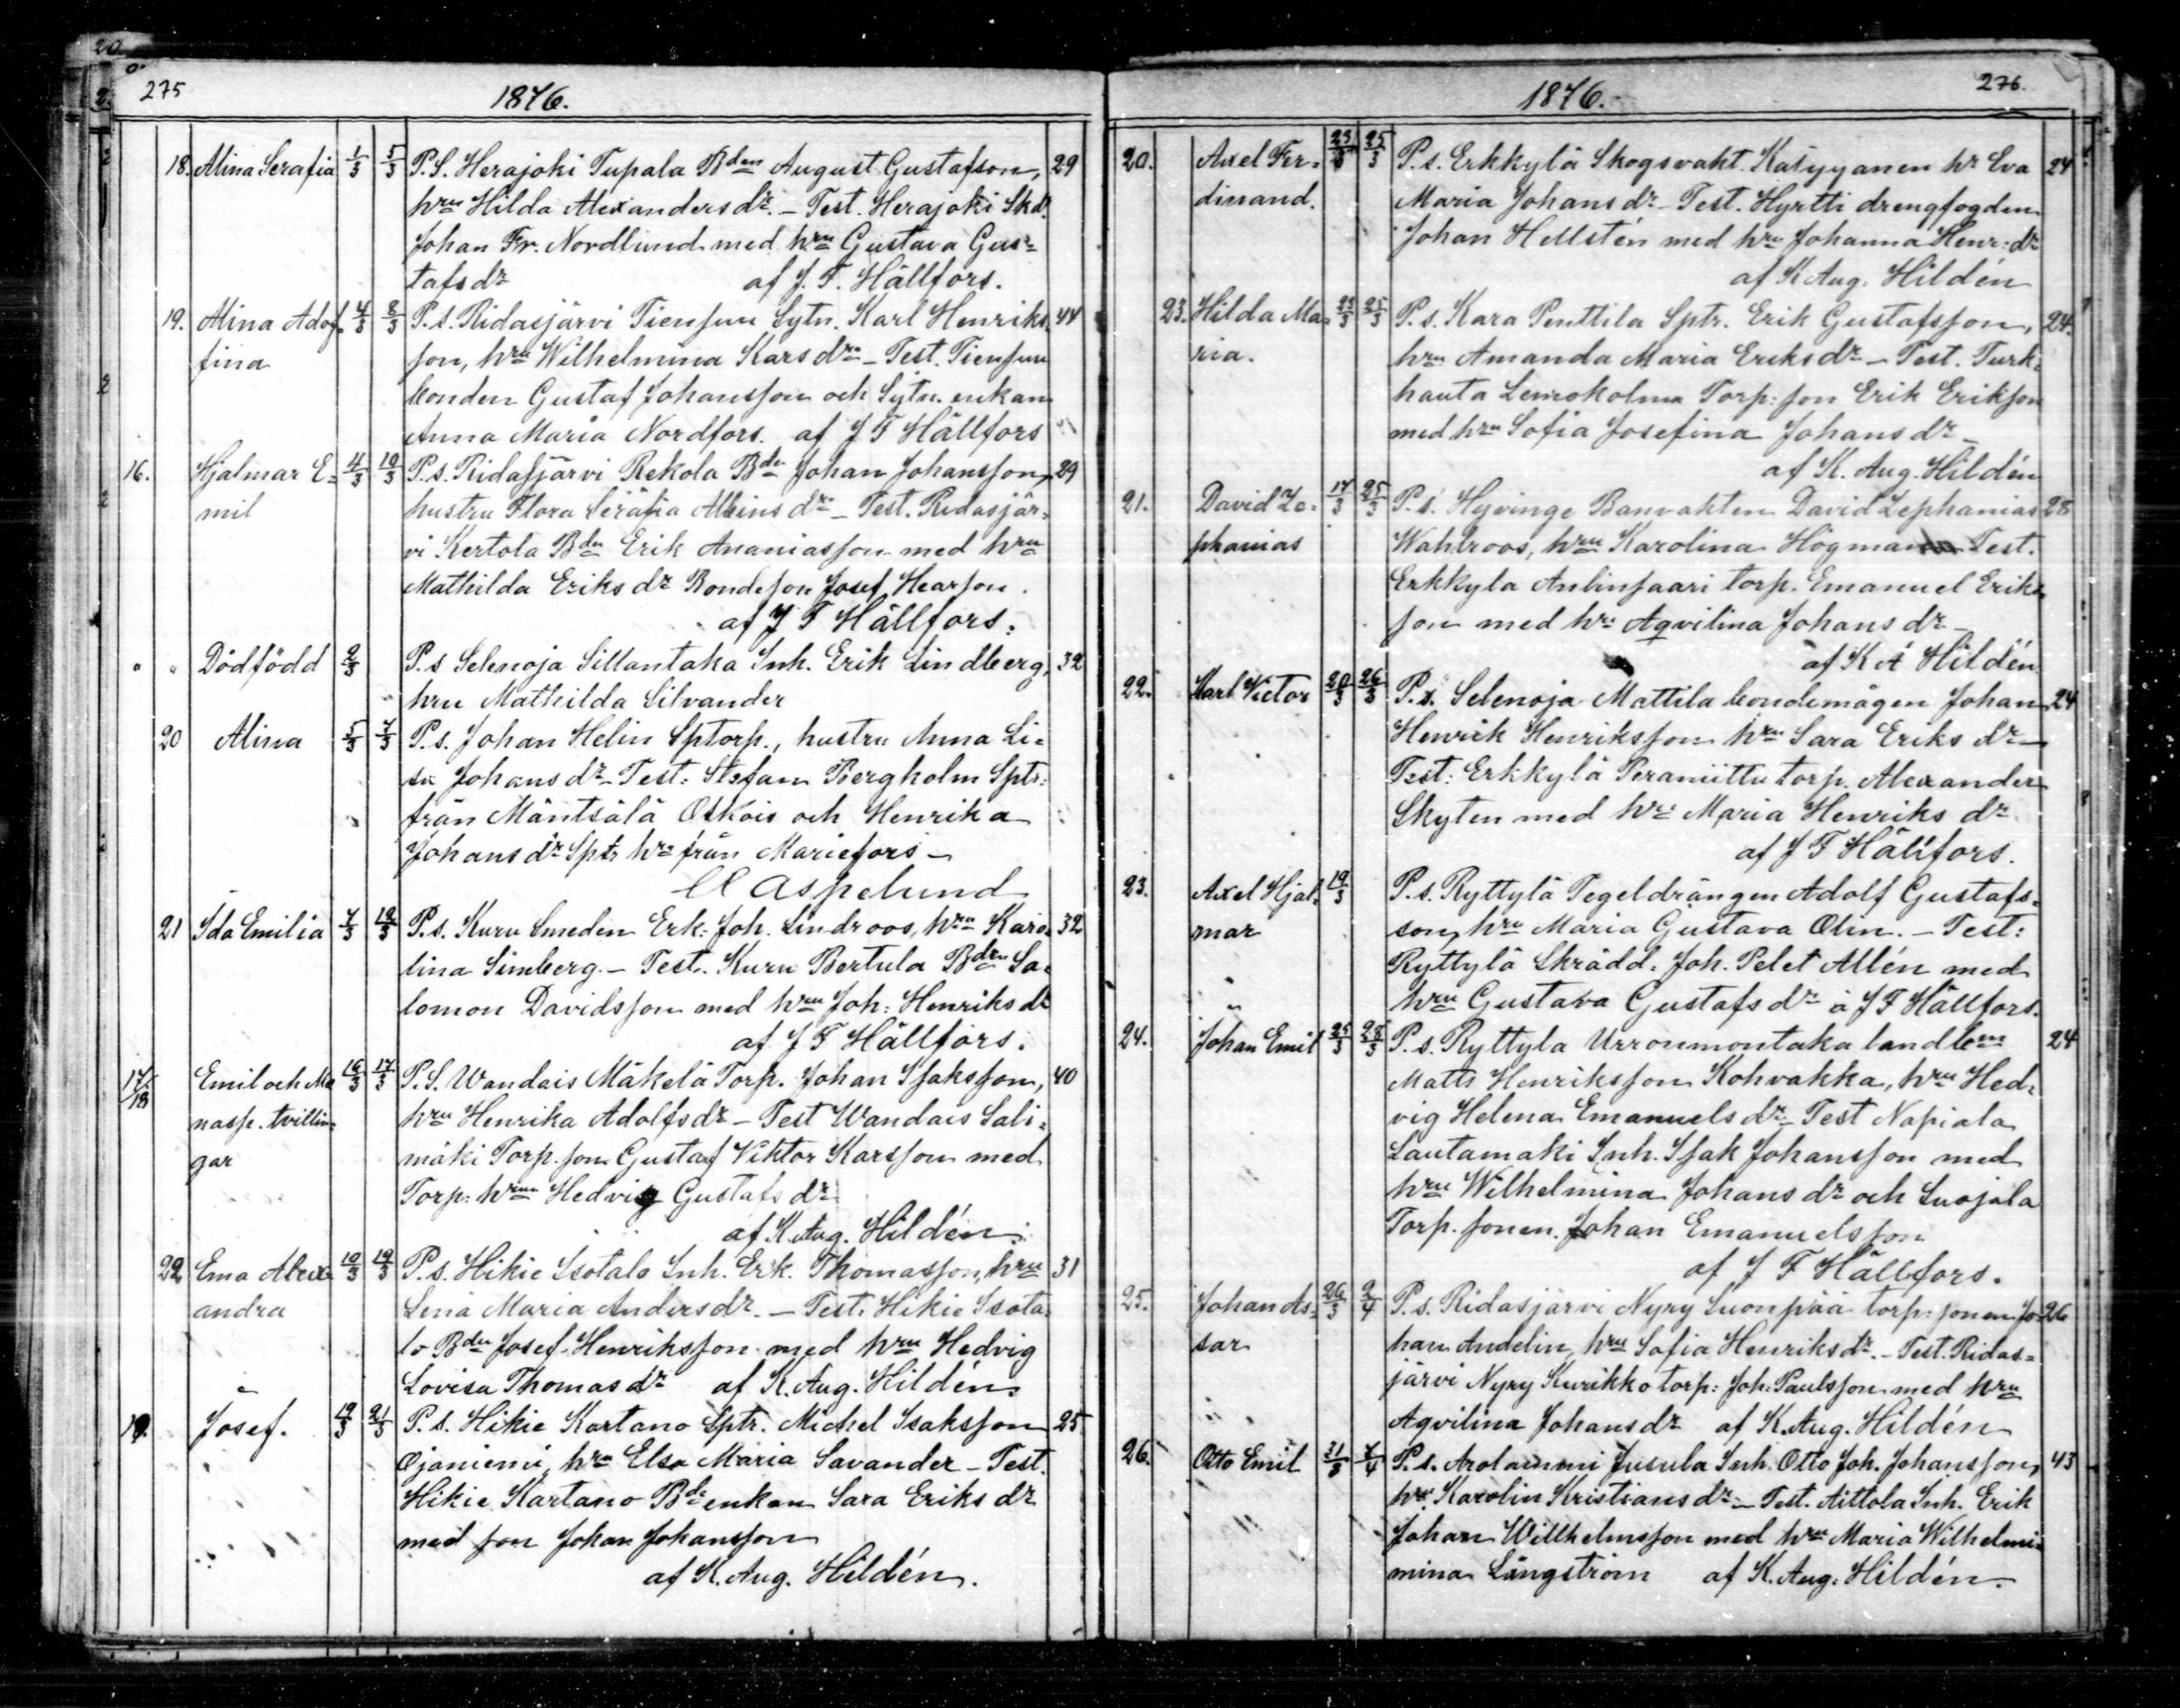 275
1876.
18. Alina Serafia 1/3 5/3 P.S. Herajoki Tupala Bden August Gustafson, 29
hru Hilda Alexandersdr. – Test. Herajoki Skd.
Johan Fr. Nordlund med hru Gustava Gus=
tafsdr af J. F. Hällfors.
19. Alina Adol= 4/3 8/3 P.s. Ridasjärvi Tiensuu Sytn. Karl Henriks 44
fina son, hru Wilhelmina Karsdr – Test. Tiensuu
bonden Gustaf Johansson och Sytn. enkan
Anna Maria Nordfors. af J F Hällfors
16. Hjalmar E= 4/3 19/3 P.s. Ridasjärvi Rekola Bdn Johan Johansson, 29
mil hustru Flora Serafia Albinsdr – Test. Ridasjär=
vi Kertola Bdn Erik Ananiasson med hru
Mathilda Eriksdr Bondeson Josef Hearson.
af J F Hällfors.
" " Dödfödd 2/3 P.s Selenoja Sillantaka Inh. Erik Lindberg, 32
hru Mathilda Silvander
20 Alina 5/3 7/3 P.s. Johan Helin Sptorp., hustru Anna Li=
sa Johansdr – Test: Stefan Bergholm Sptr.
från Mäntsälä Ohkois och Henrika
Johansdr Sptr hru från Mariefors –
Aspelund
21 Ida Emilia 7/3 12/3 P.s. Kuru Smeden Erk. Joh. Lindroos, hru Karo= 32
lina Simberg. – Test. Kuru Bertula Bden Sa=
lomon Davidsson med hru Joh: Henriksdr
af J F Hällfors.
17/18 Emil och Ma 16/3 17/3 P.S. Wandais Mäkelä Torp. Johan Isaksson, 40
nasse. tvillin= hru Henrika Adolfsdr – Test Wandais Sali=
gar mäki Torp. son Gustaf Viktor Karsson med
Torp: hrun Hedvig Gustafsdr
af K. Aug. Hildén.
22 Ema Alex= 10/3 19/3 P.s. Hikie Isotalo Inh. Erk. Thomasson, hru 31
andra Lena Maria Andersdr. – Test. Hikie Isota=
lo Bdn Josef Henriksson med hru Hedvig
Lovisa Thomasdr af K. Aug. Hildén.
19. Josef. 19/3 21/3 P.s. Hikie Kartano Sptr. Michel Isaksson 25
Ojaniemi, hru Elsa Maria Savander – Test.
Hikie Kartano Bdeenkan Sara Eriksdr
med son Johan Johansson
af K. Aug. Hildén.
276.
1876.
20. Axel Fer= 23/3 25/3 P.s. Erkkylä Skogsvakt. hr Eva 24
dinand. Maria Johansdr – Test. Hyrtti drengfogden
Johan Hellstén med hru Johanna Henr: dr
af K Aug. Hildén
23. Hilda Ma= 23/3 25/3 P.s. Kara Penttila Sptr. Erik Gustafsson, 24.
ria. hru Amanda Maria Eriksdr – Test. Turk=
hauta Torp: son Erik Erikson
med hru Sofia Josefina Johansdr –
af K. Aug. Hildén
21. David Ze= 17/3 25/3 P.s. Hyvinge Banvakten David Zephanias 28
phanias Wahlroos, hru Karolina Högman Test.
Erkkyla Anlinsaari torp. Emanuel Eriks
son med hru Aqvilina Johansdr –
af K A Hildén
22. Karl Victor 20/3 26/3 P.s. Selenoja Mattila bondemågen Johan 24
Henrik Henriksson hru Sara Eriksdr –
Test: Erkkylä Peraniittu torp. Alexander
Skyten med hru Maria Henriksdr
af J F Hällfors.
23. Axel Hjal= 19/3 P.s. Ryttylä Tegeldrängen Adolf Gustafs=
mar son, hru Maria Gustava Olin. – Test:
Ryttylä Skrädd. Joh. Pelet Allén med
hru Gustava Gustafsdr a J F Hällfors.
24. Johan Emil 25/3 28/3 P.s. Ryttyla Urronmontaka landbm 24
Matts Henriksson Kohvakka, hru Hed=
vig Helena Emanuelsdr – Test Napiala
Lautamaki Inh. Isak Johansson med
hru Wilhelmina Johansdr och Suojala
Torp. sonen Johan Emanuelsson
af J F Hällfors.
25. Johan As= 26/3 2/4 P.s. Ridasjärvi Nyry Suonpää torp: sonen Jo= 26
sar han Andelin, hru Sofia Henriksdr. – Test. Ridas=
järvi Nyry Kurikko torp: Joh: Paulsson med hru
Aqvilina Johansdr af K. Aug. Hildén
26. Otto Emil 31/3 7/4 P.s. Arolammi Jusula Inh. Otto Joh. Johansson, 43
hru Karolin Kristiansdr – Test. Aittola Inh. Erik
Johan Willhelmsson med hru Maria Wilhelmi=
mina Långström af K. Aug. Hildén.